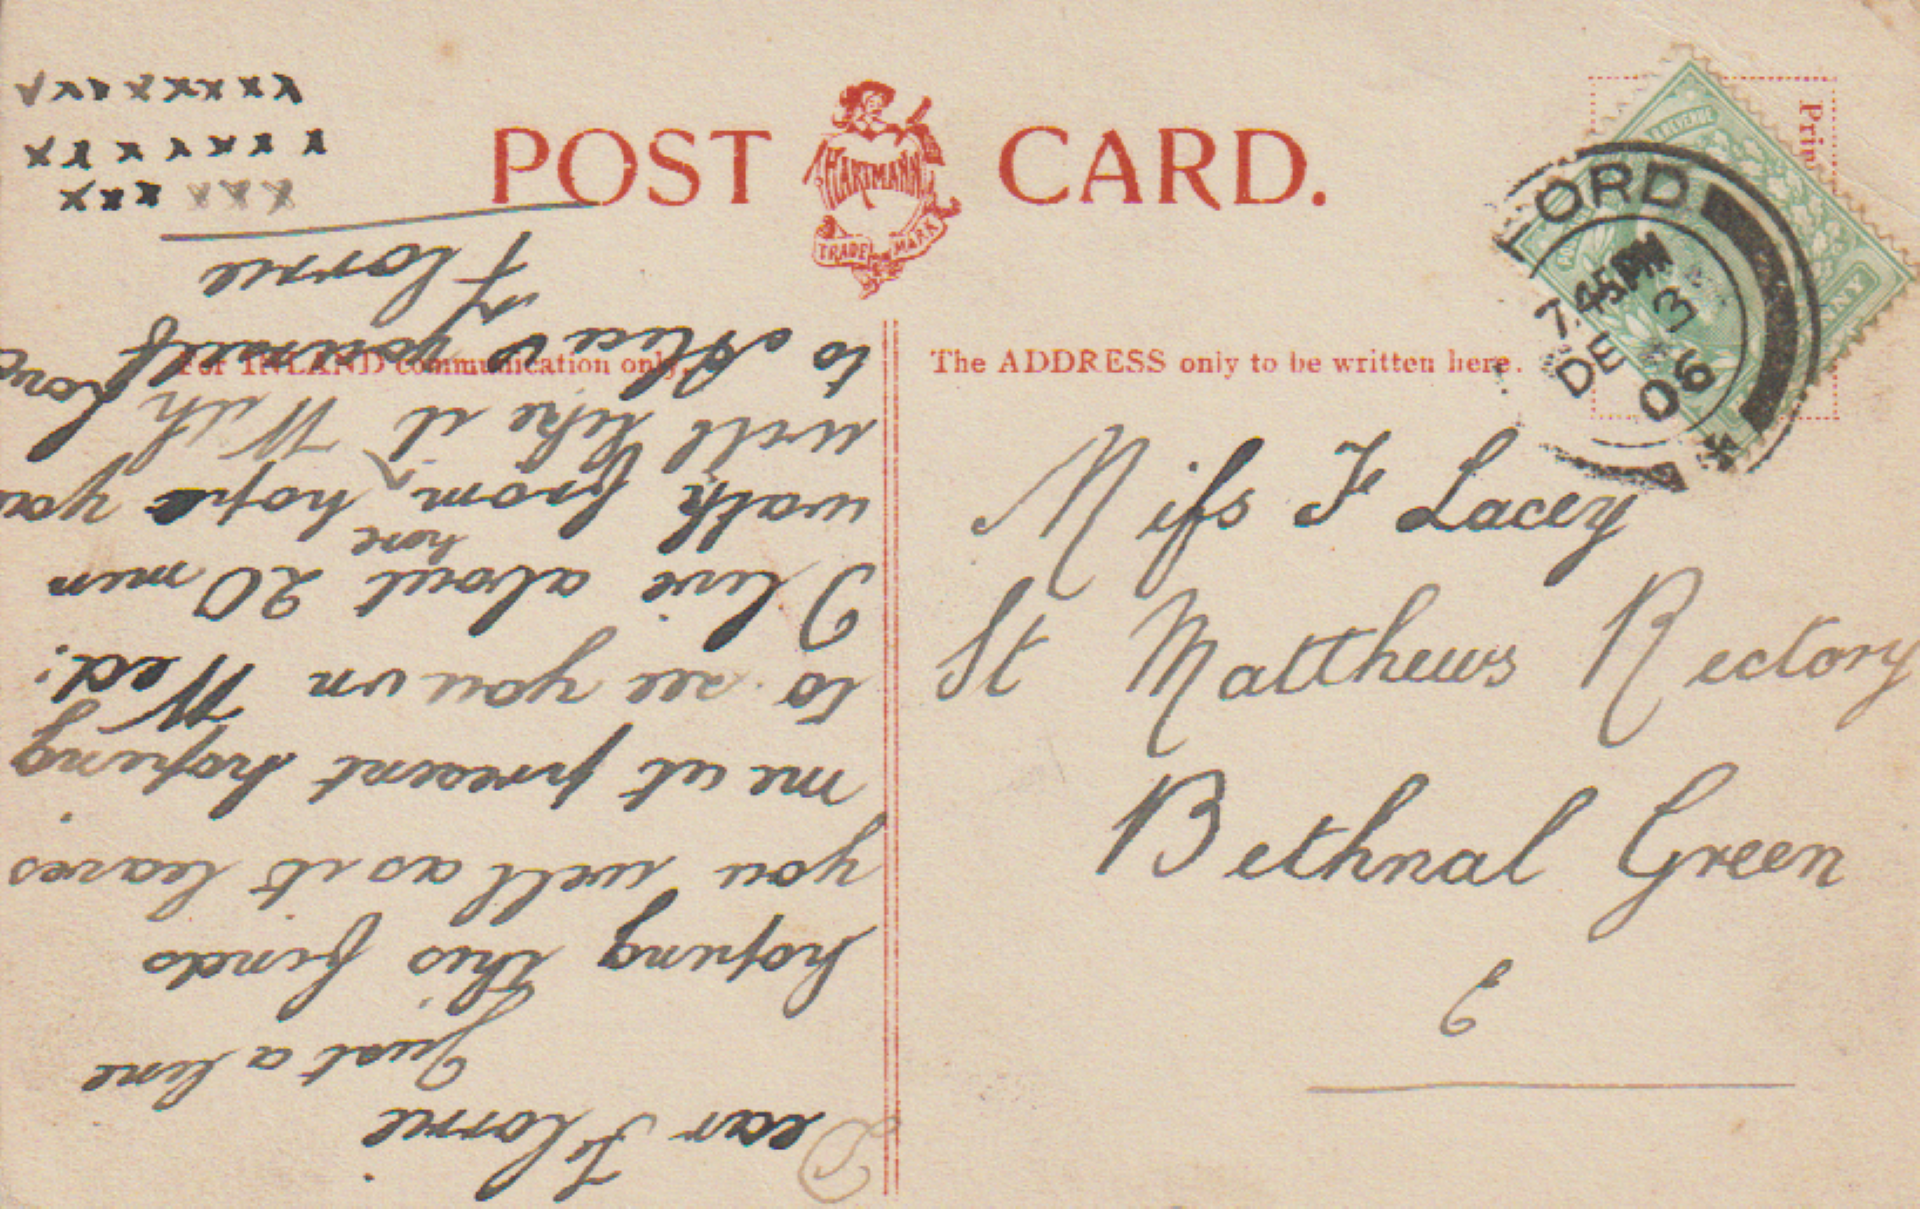 POST CARD.
HARTMANN
TRADE MARK
For INLAND communication only.
The ADDRESS only to be written here.
& REVENUE
FORD
7.45PM
DE 3
06
Miss F Lacey
St Matthews Rectory
Bethnal Green
E
Dear Florrie
Just a line
hoping this finds
you well as it leaves
me at present hoping
to see you on Wed:
I live about 20 min
walk from ^ here hope you
will like it With Love
to Alice & yourself
Florrie
x x x x x x x x
x x x x x x x
x x x x x x